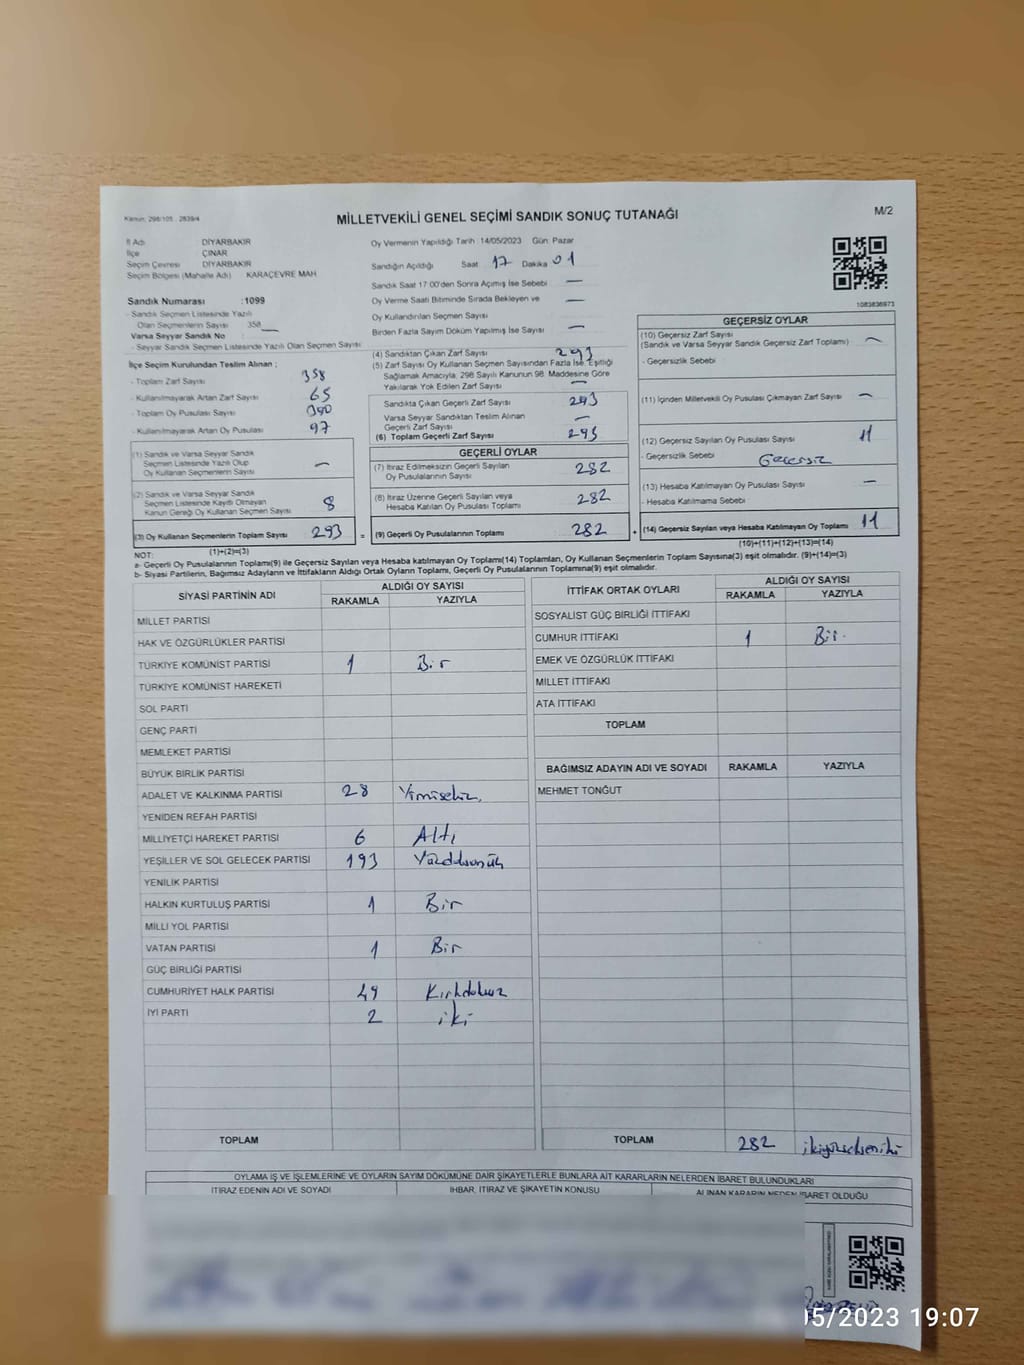 Kanun: 298/105 , 2839/4
MİLLETVEKİLİ GENEL SEÇİMİ SANDIK SONUÇ TUTANAĞI
M/2
İl Adı DİYARBAKIR
İlçe ÇINAR
Seçim Çevresi DİYARBAKIR
Seçim Bölgesi (Mahalle Adı) KARAÇEVRE MAH
Sandık Numarası :1099
- Sandık Seçmen Listesinde Yazılı
Olan Seçmenlerin Sayısı 358
Varsa Seyyar Sandık No :
- Seyyar Sandık Seçmen Listesinde Yazılı Olan Seçmen Sayısı :
Oy Vermenin Yapıldığı Tarih :14/05/2023 Gün: Pazar
Sandığın Açıldığı Saat 17 Dakika 01
Sandık Saat 17:00'den Sonra Açılmış İse Sebebi —
Oy Verme Saati Bitiminde Sırada Bekleyen ve
Oy Kullandırılan Seçmen Sayısı —
Birden Fazla Sayım Döküm Yapılmış İse Sayısı —
1083836973
İlçe Seçim Kurulundan Teslim Alınan ;
- Toplam Zarf Sayısı 358
- Kullanılmayarak Artan Zarf Sayısı 65
- Toplam Oy Pusulası Sayısı 390
- Kullanılmayarak Artan Oy Pusulası 97
(1) Sandık ve Varsa Seyyar Sandık
Seçmen Listesinde Yazılı Olup
Oy Kullanan Seçmenlerin Sayısı —
(2) Sandık ve Varsa Seyyar Sandık
Seçmen Listesinde Kayıtlı Olmayan
Kanun Gereği Oy Kullanan Seçmen Sayısı 8
(3) Oy Kullanan Seçmenlerin Toplam Sayısı 293
(1)+(2)=(3)
(4) Sandıktan Çıkan Zarf Sayısı 293
(5) Zarf Sayısı Oy Kullanan Seçmen Sayısından Fazla İse, Eşitliği
Sağlamak Amacıyla; 298 Sayılı Kanunun 98. Maddesine Göre
Yakılarak Yok Edilen Zarf Sayısı —
Sandıkta Çıkan Geçerli Zarf Sayısı 293
Varsa Seyyar Sandıktan Teslim Alınan
Geçerli Zarf Sayısı —
(6) Toplam Geçerli Zarf Sayısı 293
GEÇERLİ OYLAR
(7) İtiraz Edilmeksizin Geçerli Sayılan
Oy Pusulalarının Sayısı 282
(8) İtiraz Üzerine Geçerli Sayılan veya
Hesaba Katılan Oy Pusulası Toplamı 282
= (9) Geçerli Oy Pusulalarının Toplamı 282 +
GEÇERSİZ OYLAR
(10) Geçersiz Zarf Sayısı
(Sandık ve Varsa Seyyar Sandık Geçersiz Zarf Toplamı) —
- Geçersizlik Sebebi
(11) İçinden Milletvekili Oy Pusulası Çıkmayan Zarf Sayısı —
(12) Geçersiz Sayılan Oy Pusulası Sayısı 11
- Geçersizlik Sebebi Geçersiz
(13) Hesaba Katılmayan Oy Pusulası Sayısı —
- Hesaba Katılmama Sebebi
(14) Geçersiz Sayılan veya Hesaba Katılmayan Oy Toplamı 11
(10)+(11)+(12)+(13)=(14)
NOT:
a- Geçerli Oy Pusulalarının Toplamı(9) ile Geçersiz Sayılan veya Hesaba katılmayan Oy Toplamı(14) Toplamları, Oy Kullanan Seçmenlerin Toplam Sayısına(3) eşit olmalıdır. (9)+(14)=(3)
b- Siyasi Partilerin, Bağımsız Adayların ve İttifakların Aldığı Ortak Oyların Toplamı, Geçerli Oy Pusulalarının Toplamına(9) eşit olmalıdır.
SİYASİ PARTİNİN ADI ALDIĞI OY SAYISI
RAKAMLA YAZIYLA
MİLLET PARTİSİ
HAK VE ÖZGÜRLÜKLER PARTİSİ
TÜRKİYE KOMÜNİST PARTİSİ 1 Bir
TÜRKİYE KOMÜNİST HAREKETİ
SOL PARTİ
GENÇ PARTİ
MEMLEKET PARTİSİ
BÜYÜK BİRLİK PARTİSİ
ADALET VE KALKINMA PARTİSİ 28
YENİDEN REFAH PARTİSİ
MİLLİYETÇİ HAREKET PARTİSİ 6 Altı
YEŞİLLER VE SOL GELECEK PARTİSİ 193
YENİLİK PARTİSİ
HALKIN KURTULUŞ PARTİSİ 1 Bir
MİLLİ YOL PARTİSİ
VATAN PARTİSİ 1 Bir
GÜÇ BİRLİĞİ PARTİSİ
CUMHURİYET HALK PARTİSİ 49 Kırkdokuz
İYİ PARTİ 2 iki
TOPLAM
İTTİFAK ORTAK OYLARI ALDIĞI OY SAYISI
RAKAMLA YAZIYLA
SOSYALİST GÜÇ BİRLİĞİ İTTİFAKI
CUMHUR İTTİFAKI 1 Bir.
EMEK VE ÖZGÜRLÜK İTTİFAKI
MİLLET İTTİFAKI
ATA İTTİFAKI
TOPLAM
BAĞIMSIZ ADAYIN ADI VE SOYADI RAKAMLA YAZIYLA
MEHMET TONĞUT
TOPLAM 282 ikiyüzsekseniki
OYLAMA İŞ VE İŞLEMLERİNE VE OYLARIN SAYIM DÖKÜMÜNE DAİR ŞİKAYETLERLE BUNLARA AİT KARARLARIN NELERDEN İBARET BULUNDUKLARI
İTİRAZ EDENİN ADI VE SOYADI İHBAR, İTİRAZ VE ŞİKAYETİN KONUSU ALINAN KARARIN NEDEN İBARET OLDUĞU
05/2023 19:07